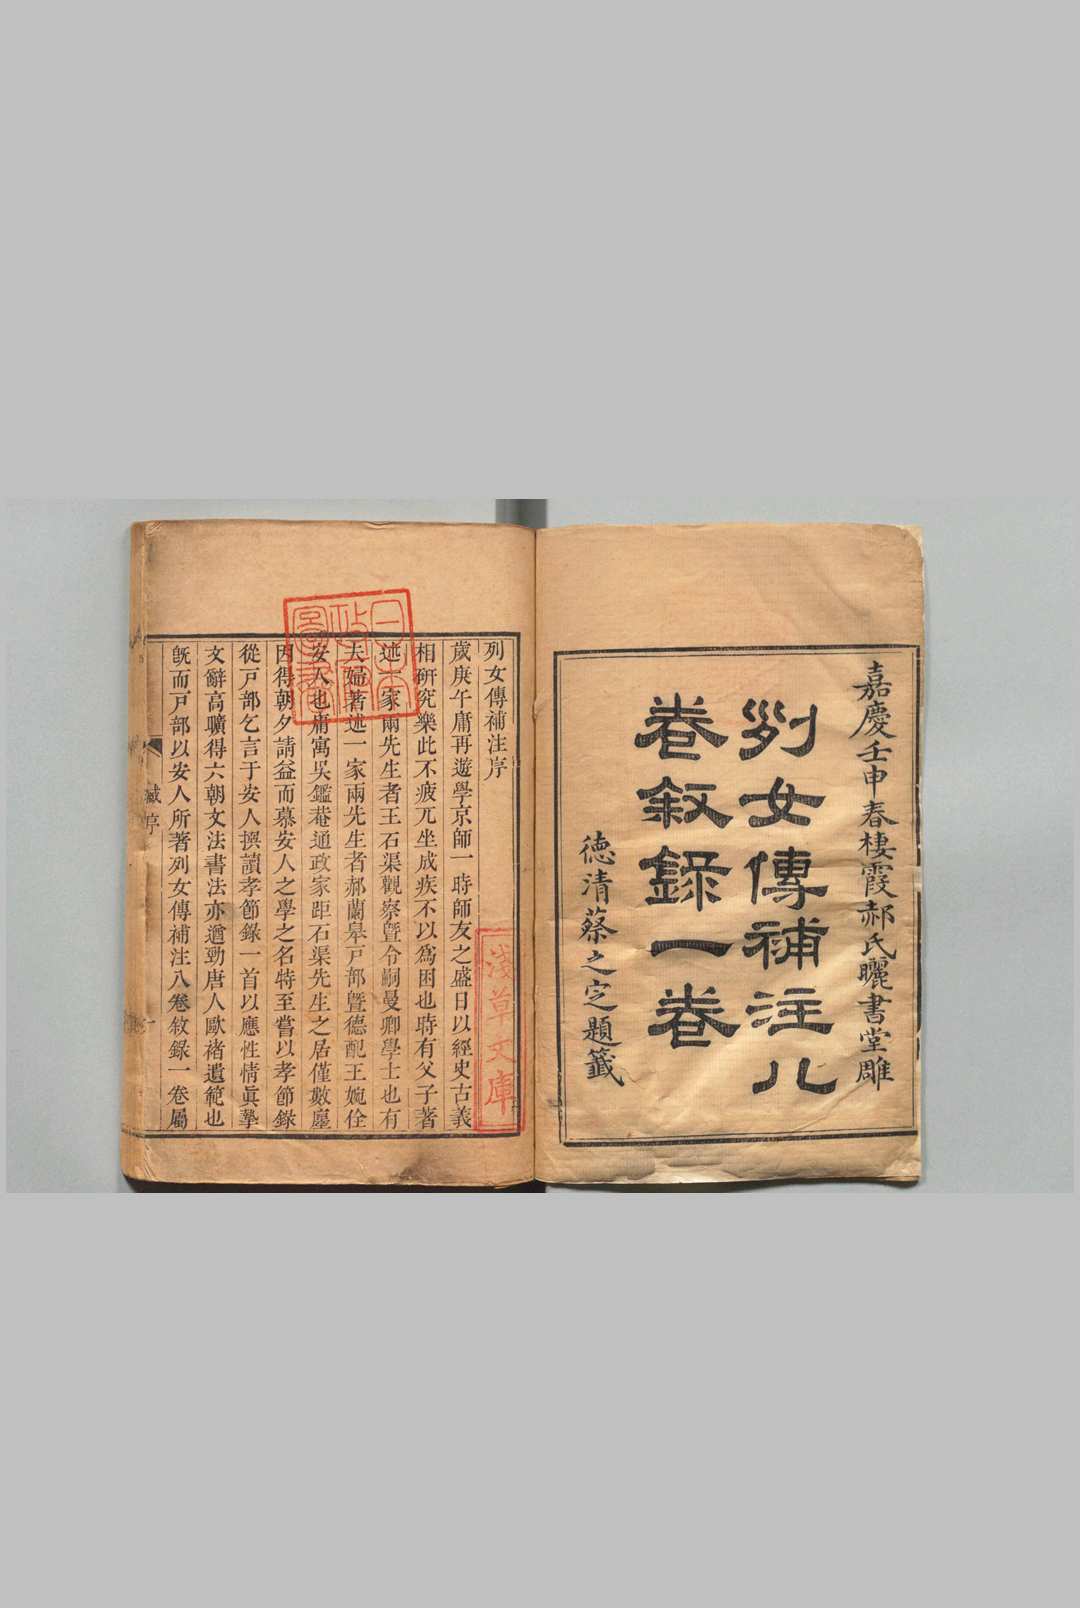 嘉慶壬申春棲霞郝氏曬書堂雕
列女傳補注八
卷敘錄一卷
德清蔡之定題籤
列女傳補注序
歲庚午庸再遊學京師一時師友之盛日以經史古義
相硏究樂此不疲兀坐成疾不以爲困也時有父子著
述一家兩先生者王石渠觀察曁令嗣曼卿學士也有
夫婦著述一家兩先生者郝蘭皋戸部曁德配王婉佺
安人也庸寓吳鑑菴通政家距石渠先生之居僅數廛
因得朝夕請益而慕安人之學之名特至嘗以孝節錄
從戸部乞言于安人撰讀孝節錄一首以應性情眞摯
文辭高曠得六朝文法書法亦遒勁唐人歐褚遺範也
旣而戸部以安人所著列女傳補注八卷敘錄一卷屬
臧序
一
日本
政府
圖書
淺草文庫